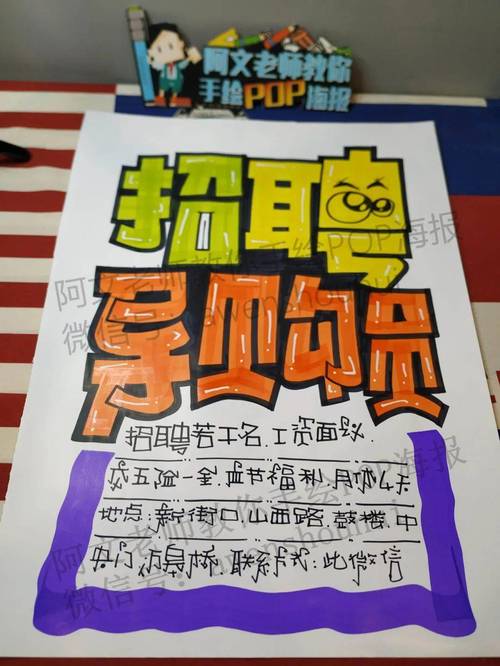 阿文老师教你
手绘POP海报
招聘
导购员
招聘若干名,工资面议.
五险一金,节福利,月休4天
地点:新街口,山西路,鼓楼,中
央门,迈皋桥.联系方式:此微信
阿文老师教你手绘POP海报
微信号:awenshouhui
阿文老师教你手绘POP海报
微信号:awenshouhui